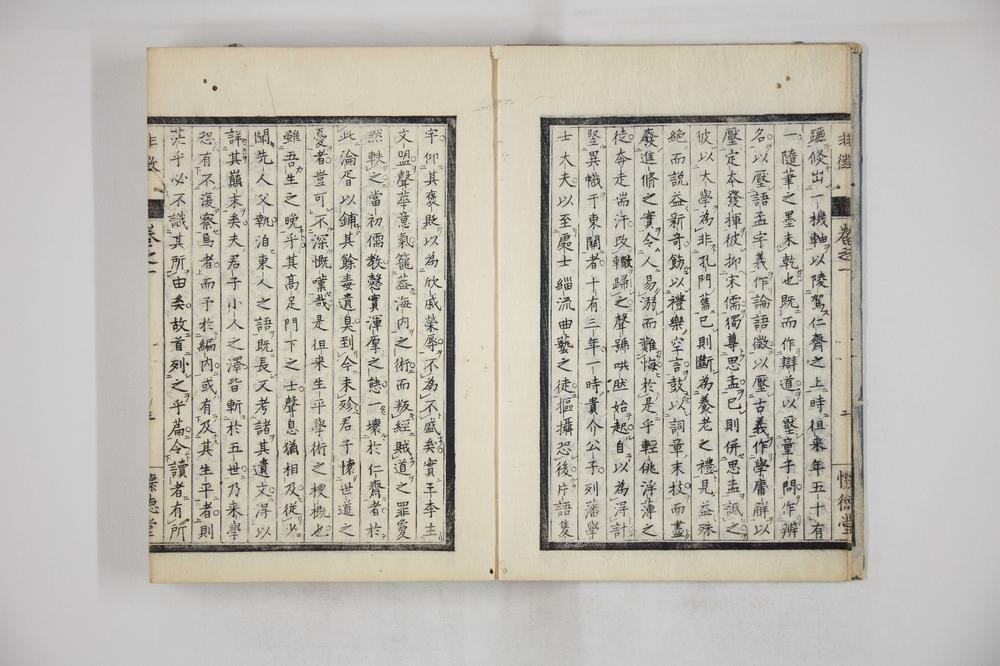 非徴
卷之一
二
懷德堂
聽倐出一機軸以陵駕仁齋之上時徂来年五十有
一隨筆之墨未乾也既而作辯道以壓童子問作辨
名以壓語孟字義作論語徵以壓古義作學庸解以
壓定本發揮彼抑宋儒獨尊思孟已則併思孟詆之
彼以大學為非孔門舊已則斷為養老之禮見益殊
絶而説益新奇餝以禮樂空言鼓以詞章末技而盡
廢進脩之實令人易溺而難悔於是乎輕佻浮薄之
徒奔走喘汗改轍歸之聲號哄然始起自以為得計
堅異幟于東關者十有三年一時貴介公子列藩學
士大夫以至處士緇流曲藝之徒摳攝恐後片語隻
字仰其褒敗以為欣戚榮辱不為不盛矣實王李主
文盟聲華意氣籠蓋海内之術而叛經賊道之罪敻
然軼之當初儒教愨實渾厚之態一壞於仁齋者於
此淪胥以鋪其餘毒遺臭到今未殄君子懷世道之
憂者豈可不深慨嘆哉是徂来生平學術之梗概也
雖吾生之晩乎其高足門下之士聲息猶相及從少
聞先人父執洎東人之語既長又考諸其遺文得以
詳其巓末矣夫君子小人之澤皆斬於五世乃来學
恐有不復察焉者而予於編内或有及其生平者則
茫乎必不識其所由矣故首列之乎篇令讀者有所
非徴
卷之一
懷德堂